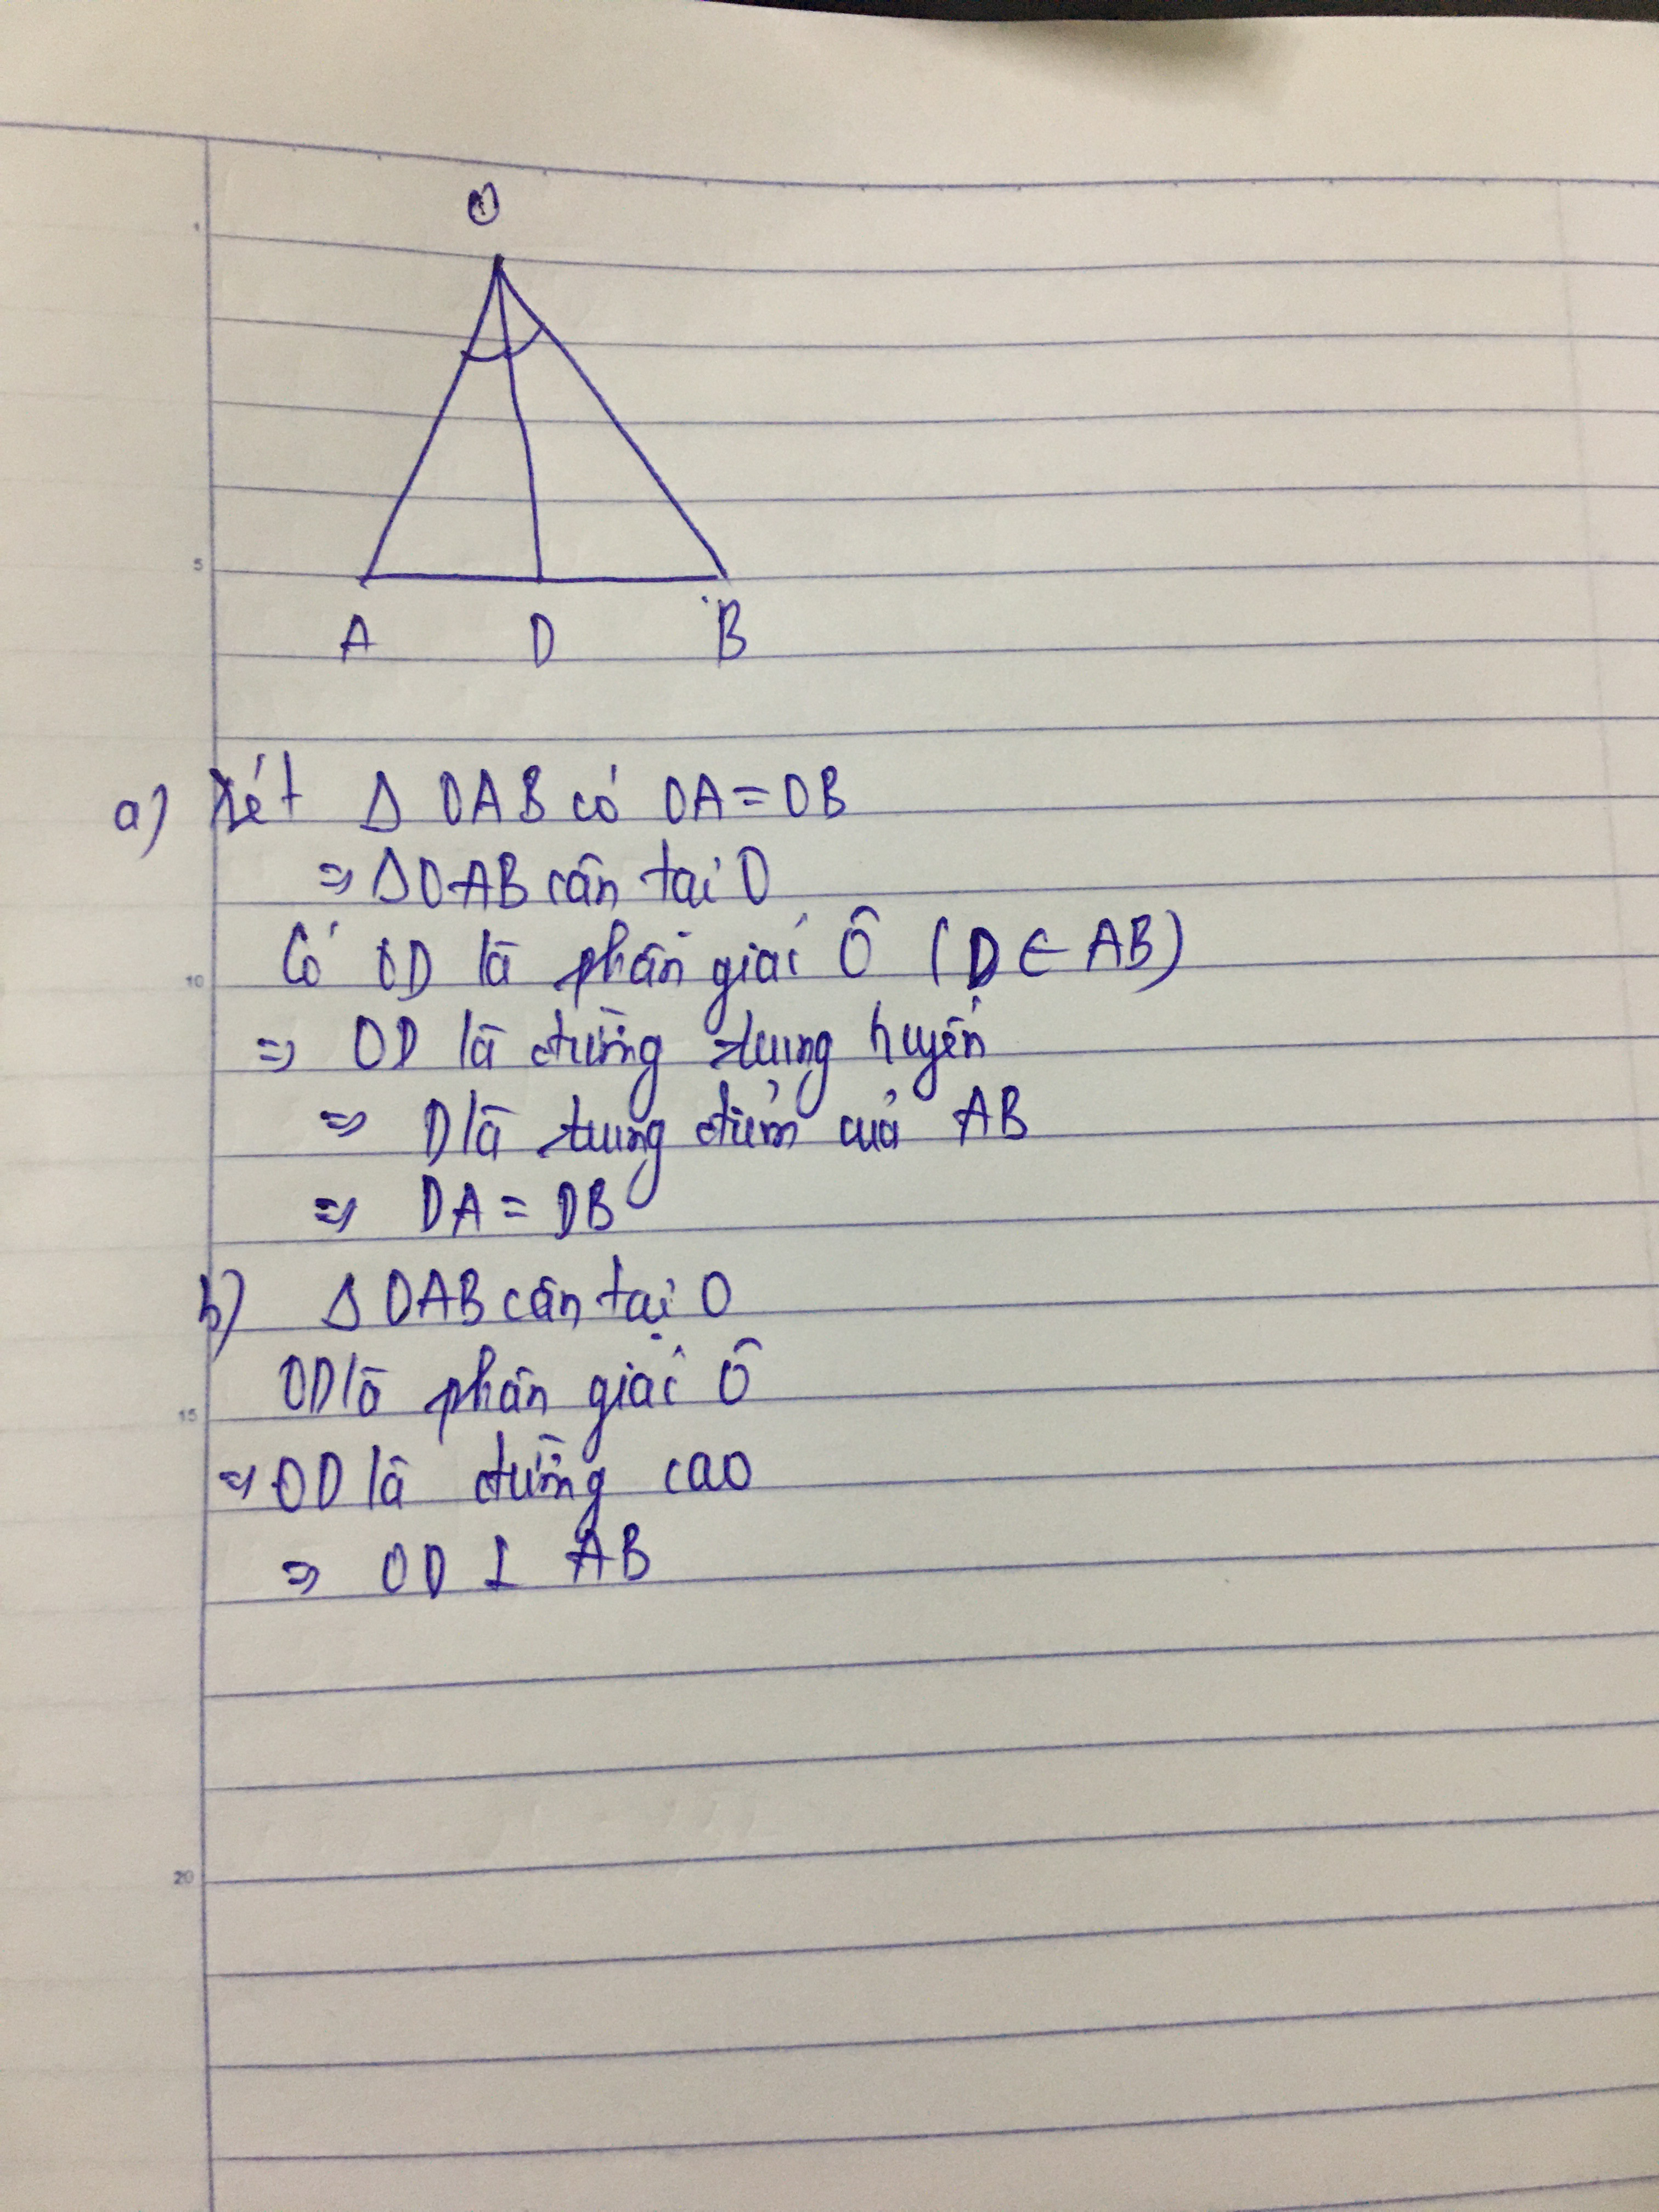 O
A D B
a) Xét Δ OAB có OA = OB
⇒ ΔOAB cân tại O
Có OD là phân giác Ô (D ∈ AB)
⇒ OD là đường trung tuyến
⇒ D là trung điểm của AB
⇒ DA = DB
b) Δ OAB cân tại O
OD là phân giác Ô
⇒ OD là đường cao
⇒ OD ⊥ AB
1
5
10
15
20